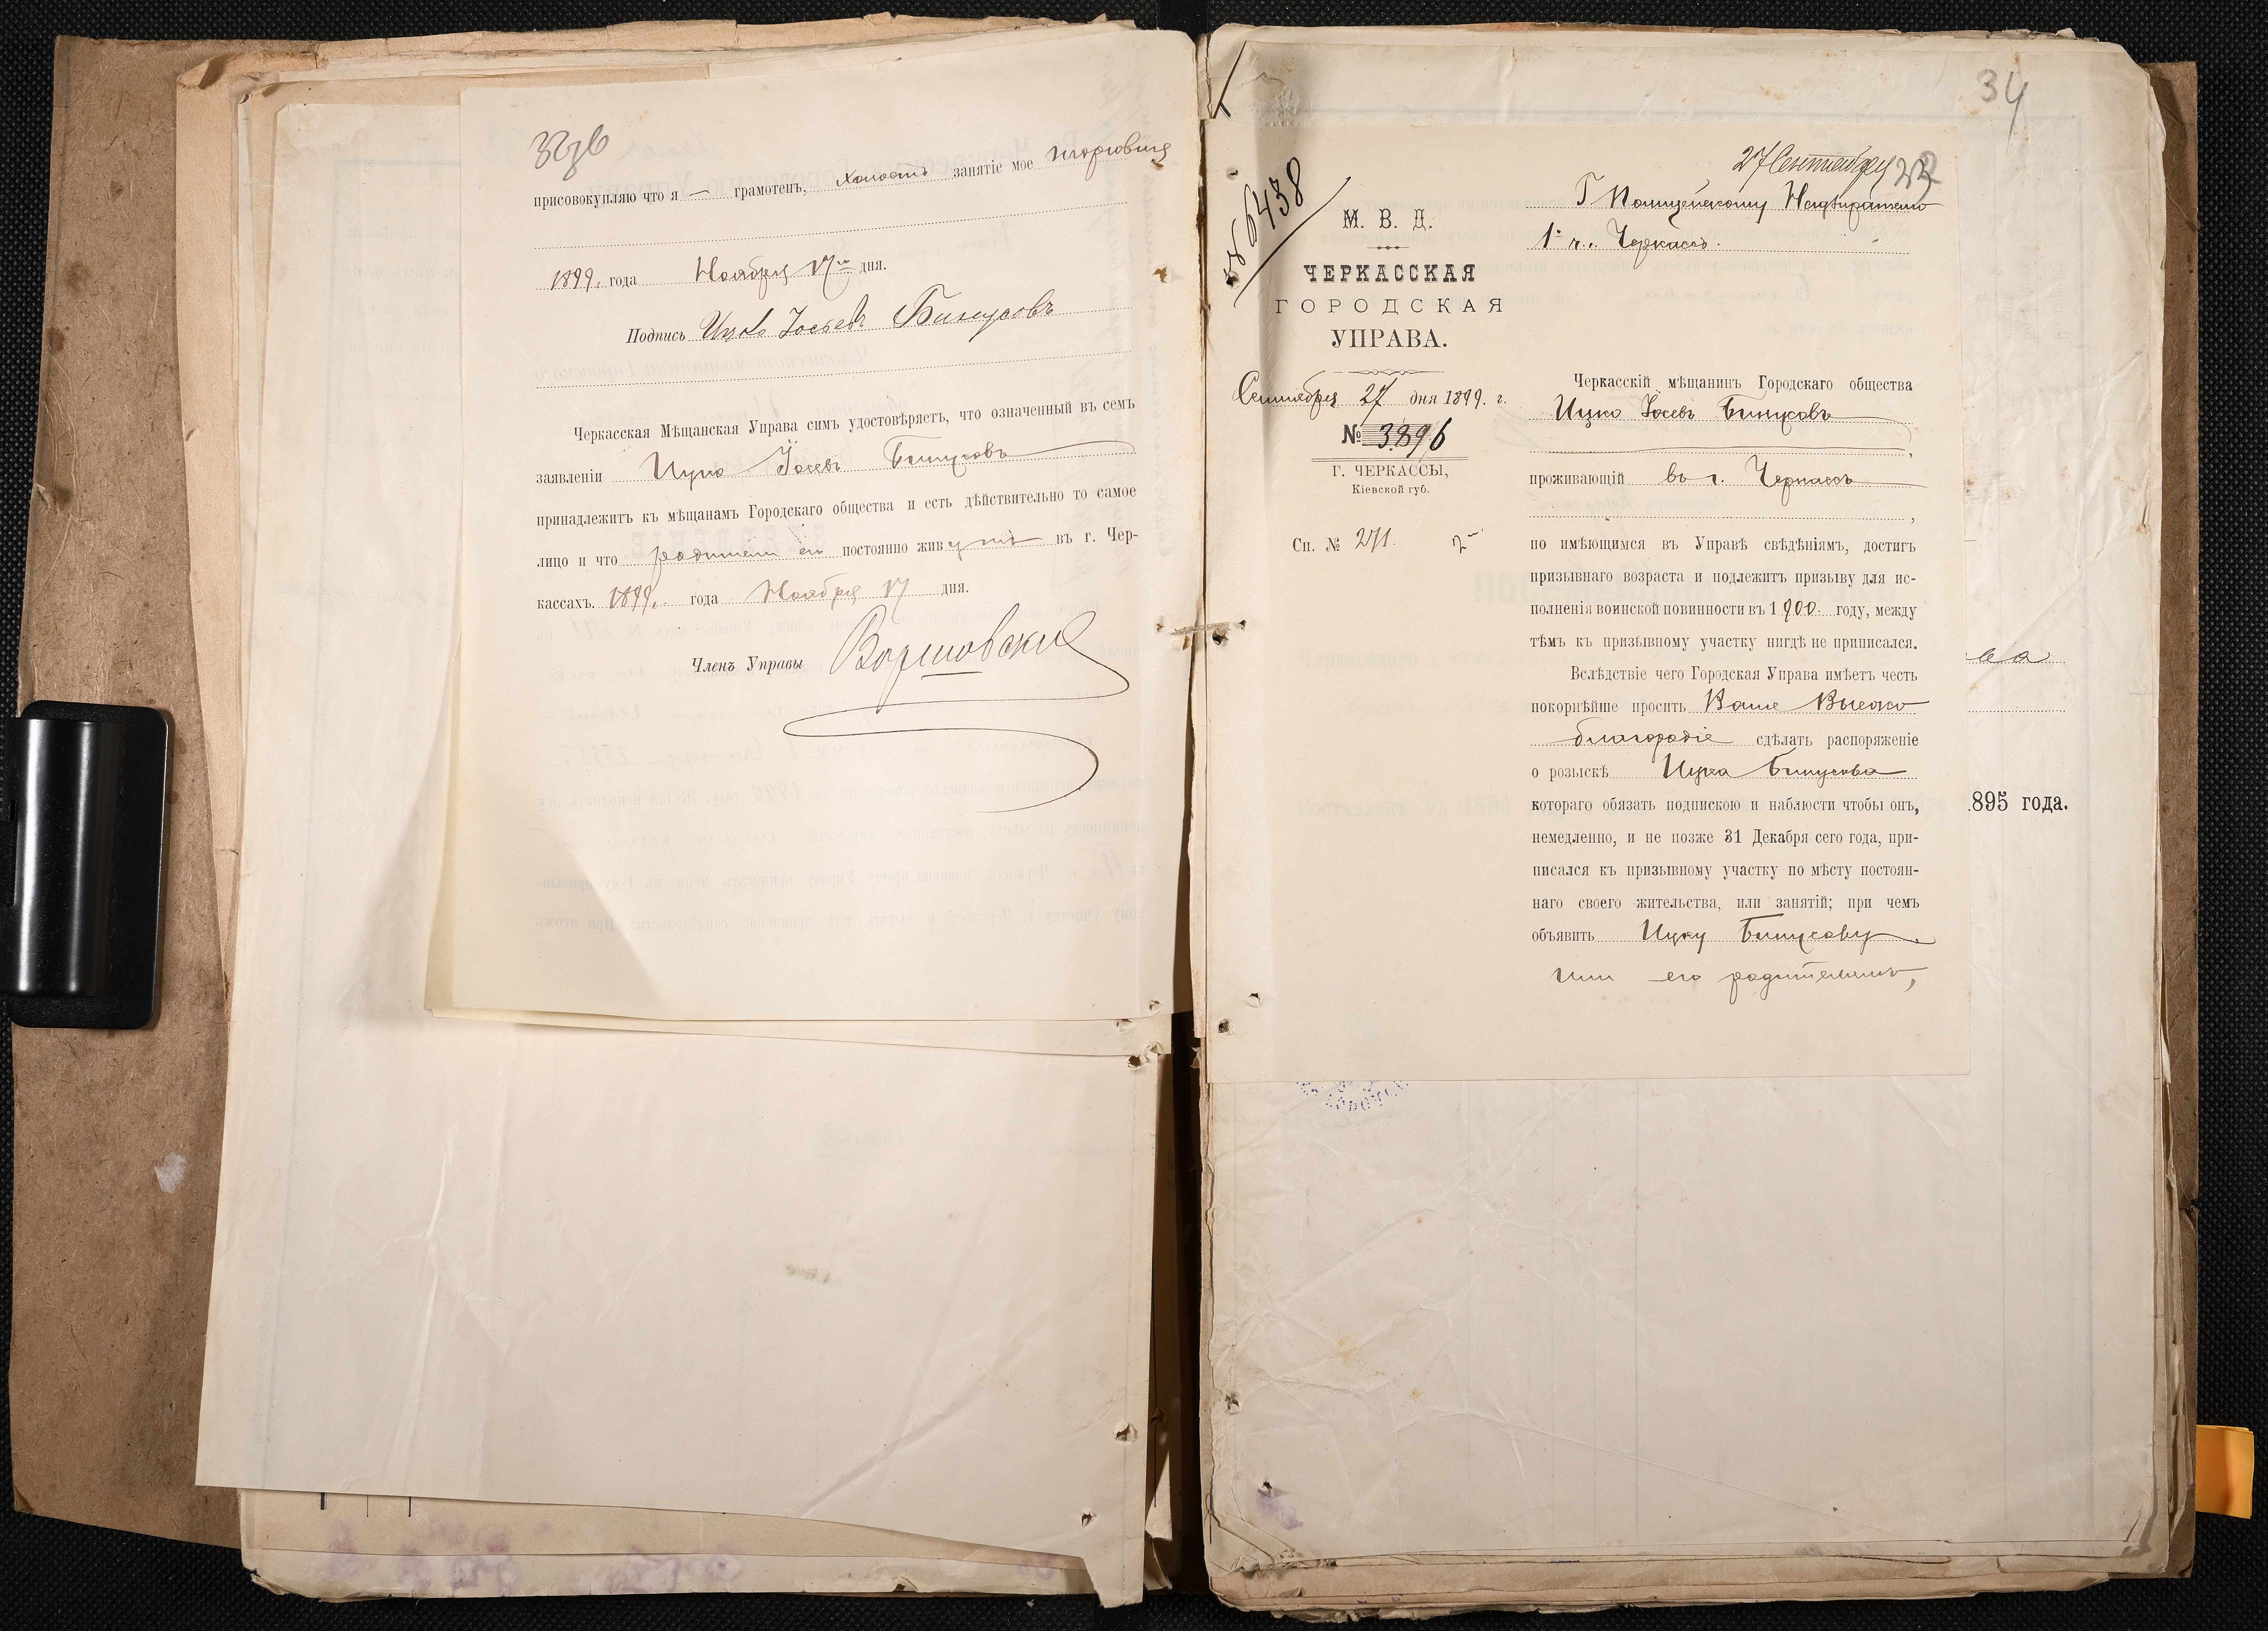 присовокупляю что я — грамотенъ, холостъ занятіе мое торговля
1899. года Ноября 17го дня.
Подпись Ицко Іосевъ Бинусовъ
Черкасская Мѣщанская Управа симъ удостовѣряетъ, что означенный въ семъ
заявленіи Ицко Іосевъ Бинусовъ
принадлежитъ къ мѣщанамъ Городскаго общества и есть дѣйствительно то самое
лицо и что родители его постоянно живутъ въ г. Чер-
кассахъ. 1899. года Ноября 17 дня.
Членъ Управы
34
27 Сентября
№ 6438
Г Полицейскому Надзирателю
1й ч. Черкассъ.
М. В. Д.
ЧЕРКАССКАЯ
ГОРОДСКАЯ
УПРАВА.
Сентября 27 дня 1899. г.
№ 3896
Г. ЧЕРКАССЫ,
Кіевской губ.
Сп. № 271.
Черкасскій мѣщанинъ Городскаго общества
Ицко Іосевъ Бинусовъ
проживающій въ г. Черкассъ
по имѣющимся въ Управѣ свѣдѣніямъ, достигъ
призывнаго возраста и подлежитъ призыву для ис-
полненія воинской повинности въ 1900 году, между
тѣмъ къ призывному участку нигдѣ не приписался.
Вслѣдствіе чего Городская Управа имѣетъ честь
покорнѣйше просить Ваше Высоко
благородіе сдѣлать распоряженіе
о розыскѣ Ицка Бинусова
котораго обязать подпискою и наблюсти чтобы онъ,
немедленно, и не позже 31 Декабря сего года, при-
писался къ призывному участку по мѣсту постоян-
наго своего жительства, или занятій; при чемъ
объявить Ицку Бинусову
или его родителямъ,
895 года.